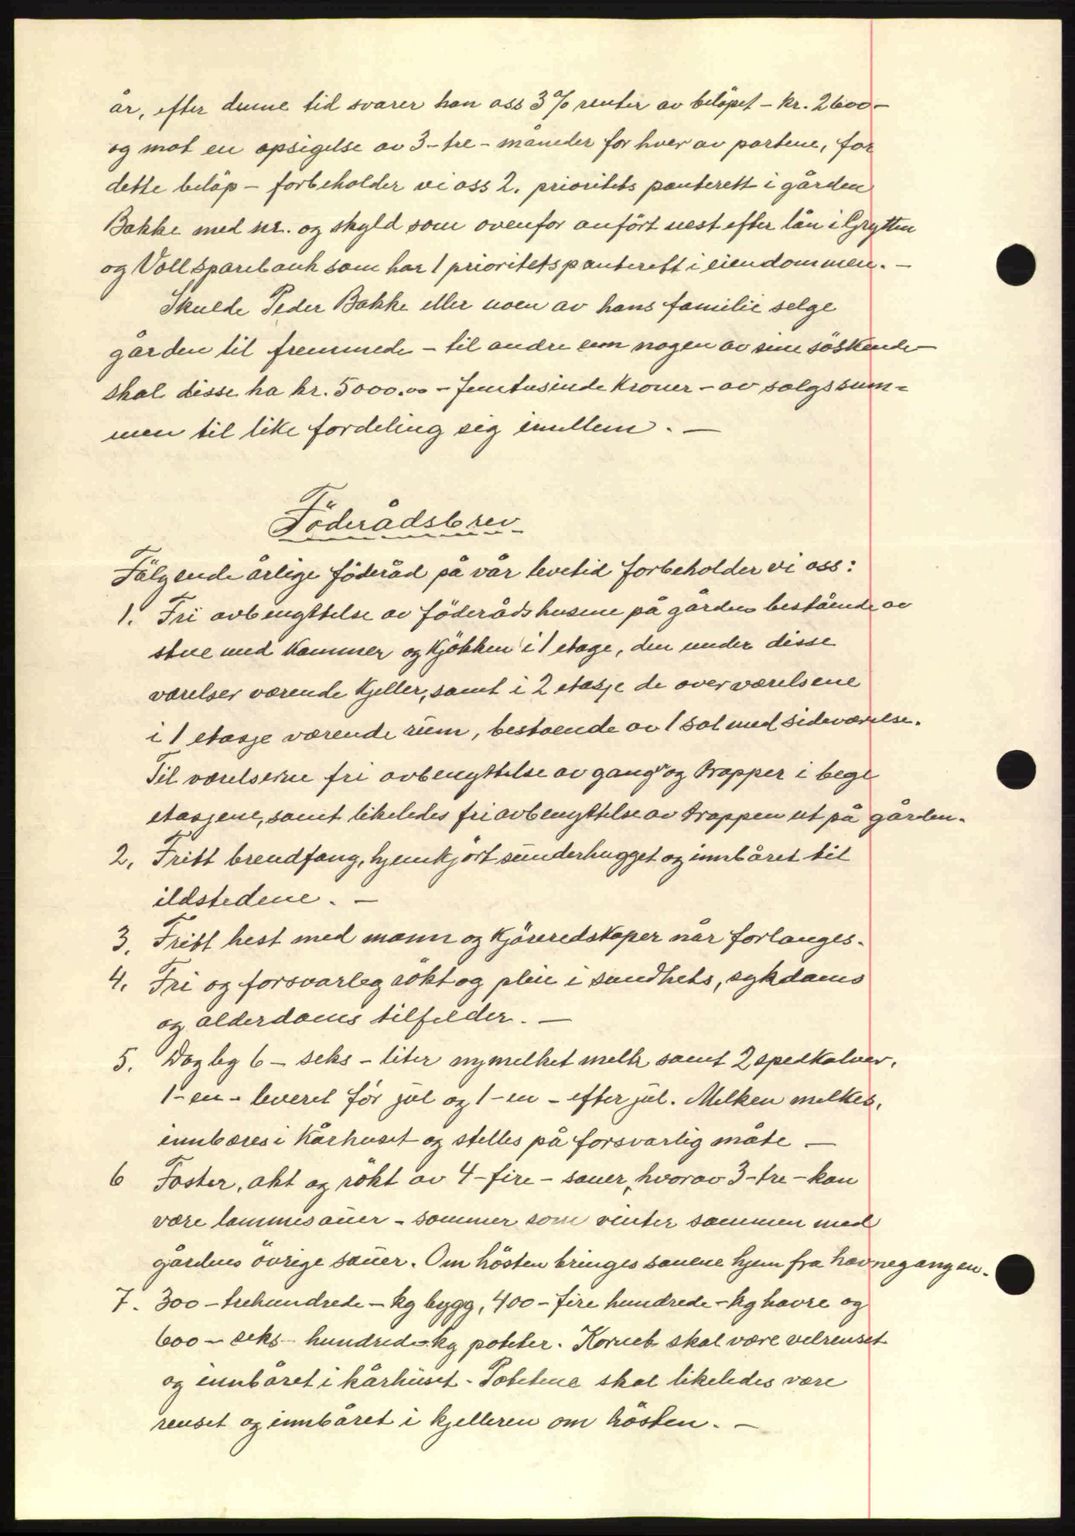 år, efter denne tid svarer han oss 3% renter av belöpet - kr. 2600 -
og mot en opsigelse av 3 - tre - måneder for hver av partene, for
dette belöp - forbeholder vi oss 2. prioritets panterett i gården
Bakke med nr. og skyld som ovenfor anfört nest efter lån i Grytten
og Voll sparebank som har 1 prioritets panterett i eiendommen. -
Skulde Peder Bakke eller noen av hans familie selge
gården til fremmede - til andre enn nogen av sine söskende -
skal disse ha kr. 5000.00 - femtusinde Kroner - av salgssum-
men til like fordeling sig imellem. -
Föderådsbrev
Fölgende årlige föderåd på vår levetid forbeholder vi oss:
1. Fri avbenyttelse av föderådshusene på gården bestående av
stue med Kammer og Kjökken i 1 etage, den under disse
værelser værende Kjeller, samt i 2 etasje de over værelsene
i 1 etasje værende rum, bestaende av 1 sal med sideværelse.
Til værelserne fri avbenyttelse av gang og trapper i bege
etasjene, samt likeledes fri avbenyttelse av trappen ut på gården.
2. Fritt brendfang, hjemkjört sunderhugget og innbåret til
ildstedene. -
3. Fritt hest med mann og Kjöreredskaper når forlanges.
4. Fri og forsvarleg rökt og pleie i sundhets, sykdoms
og alderdoms tilfelder. -
5. Dagleg 6 - seks - liter nymelket melk samt 2 spedkalver,
1 - en - leveret för jul og 1 - en - efter jul. Melken melkes,
innbæres i Kårhuset og stelles på forsvarlig måte -
6 Foster, akt og rökt av 4 - fire - sauer, hvorav 3 - tre - kan
være lammesauer - sommer som vinter sammen med
gårdens övrige sauer. Om hösten bringes sauene hjem fra havnegangen.
7. 300 - trehundrede - kg bygg, 400 - fire hundrede - kg havre og
600 - seks hundrede - kg poteter. Kornet skal være velrenset
og innbåret i kårhuset - Potetene skal likeledes være
renset og innbåret i kjelleren om hösten. -